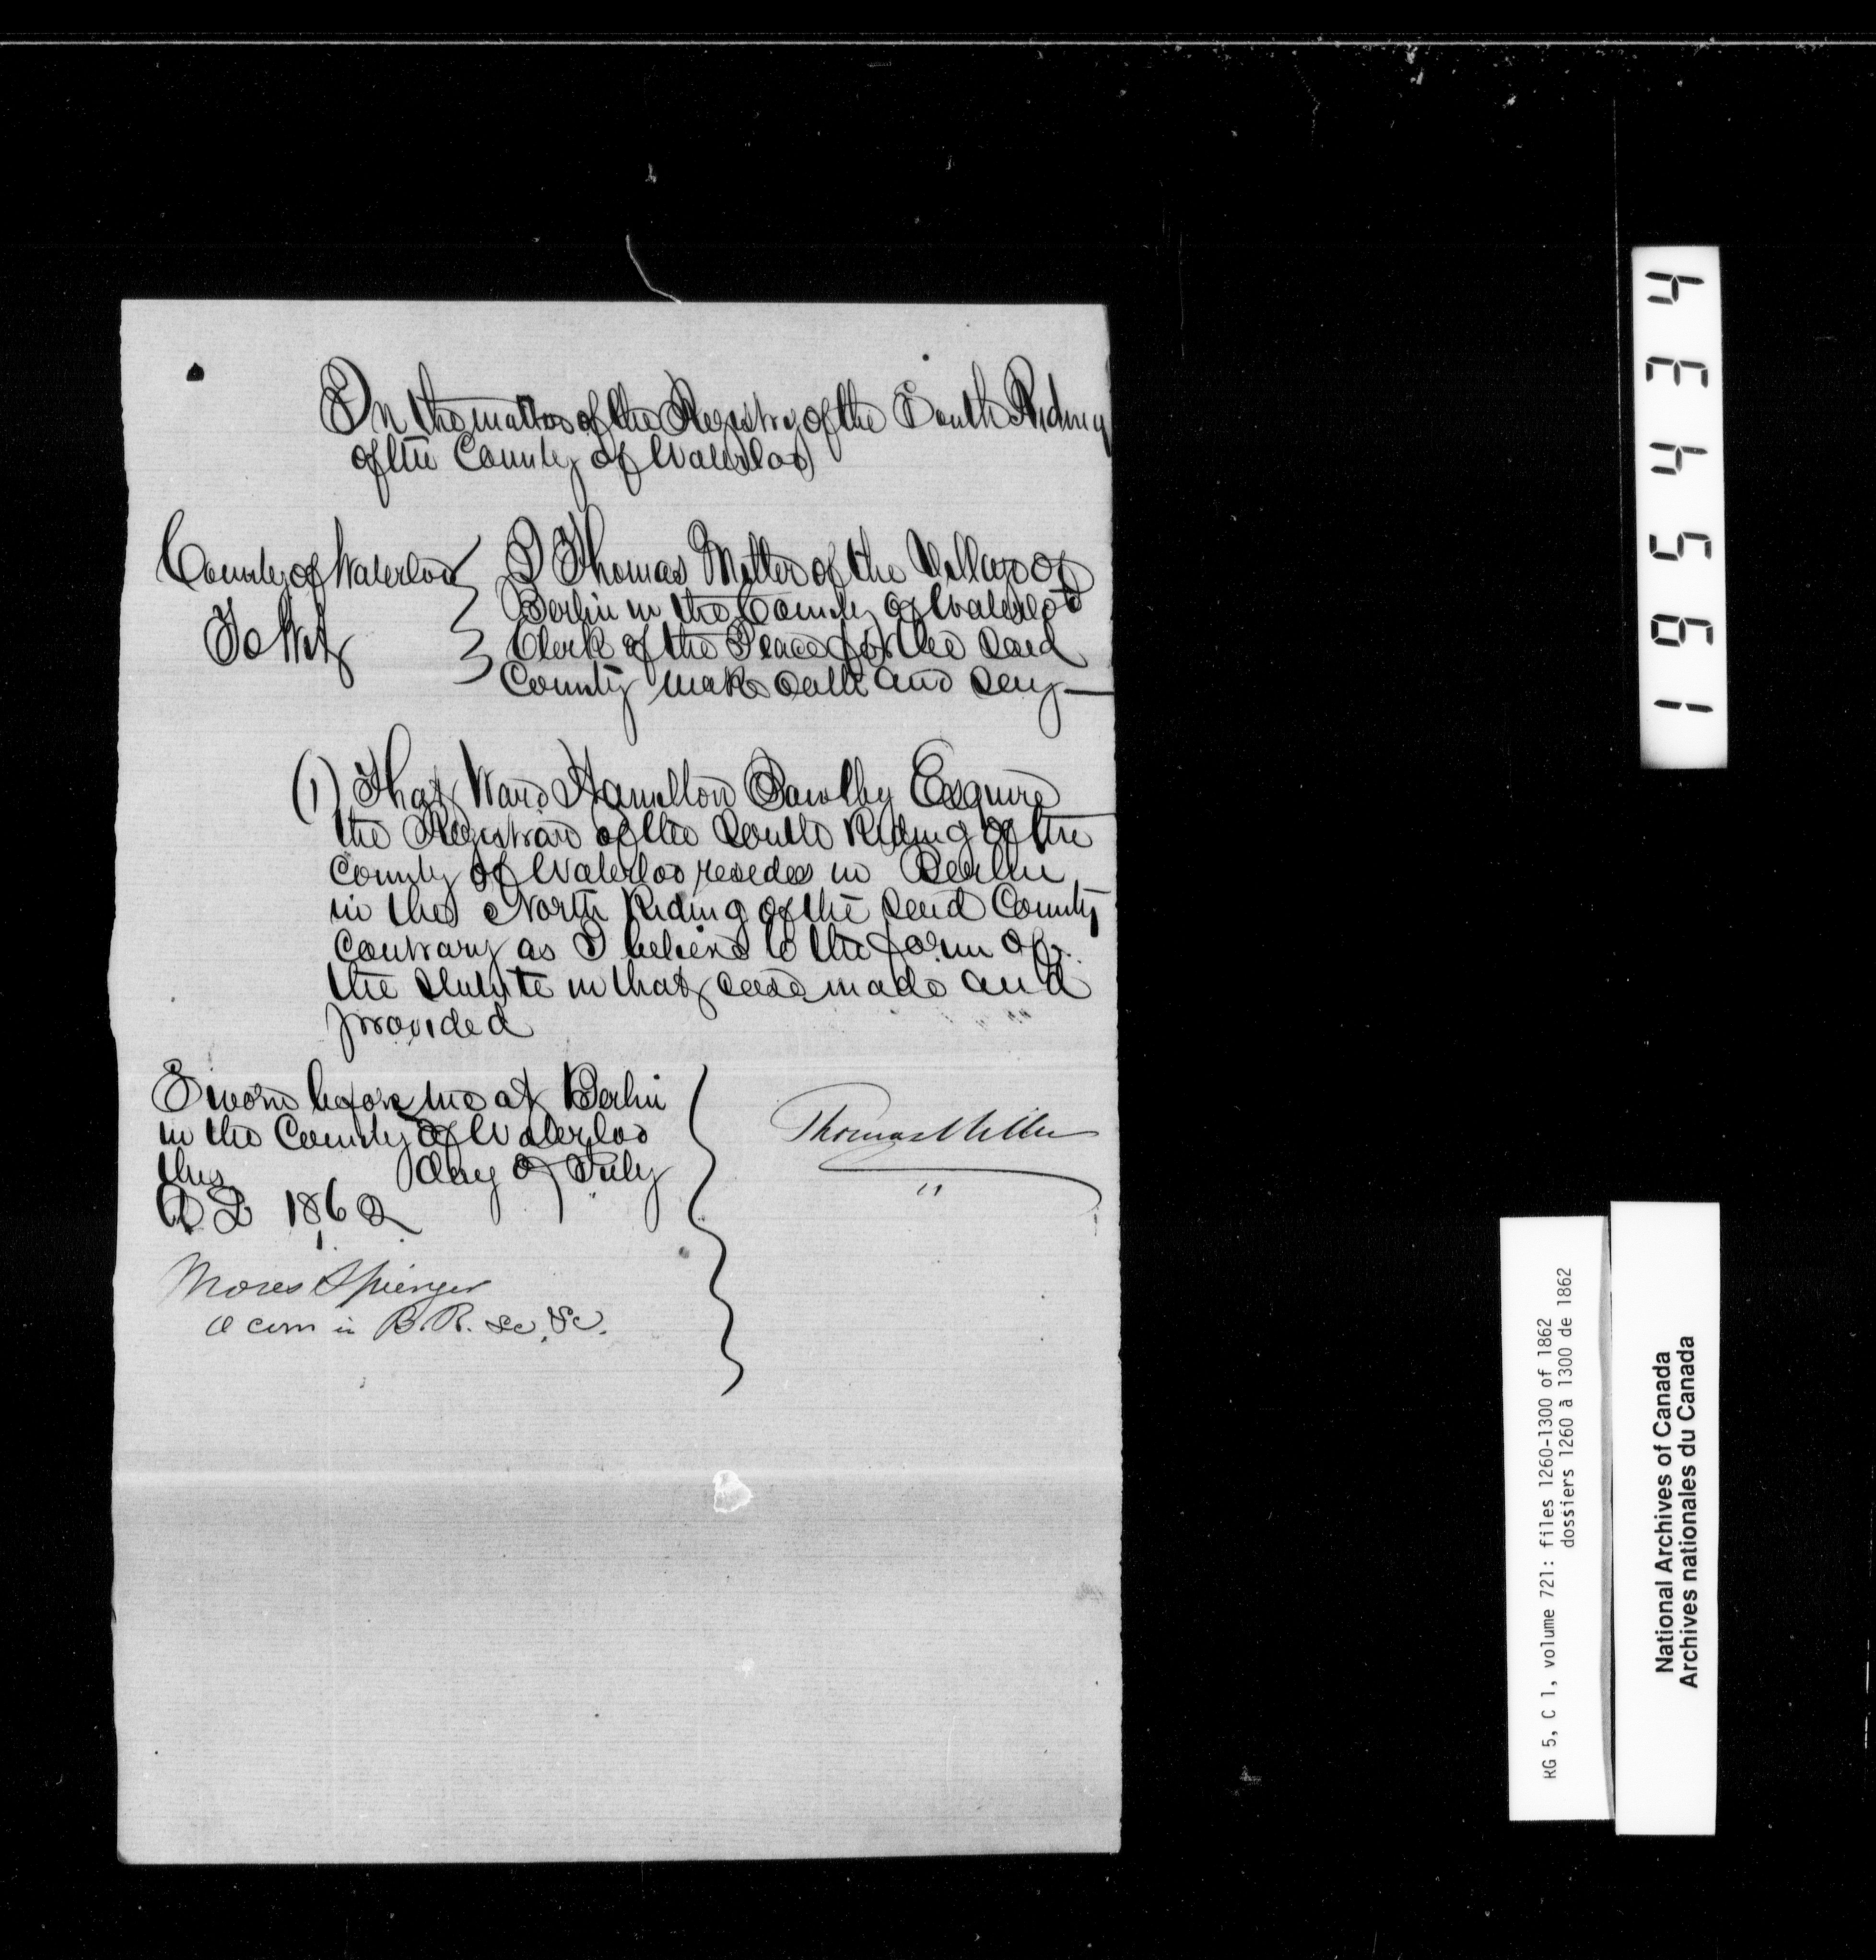 In the matter of the Registry of the South Riding
of the County of Waterloo
County of Waterloo
To Wit
I Thomas Miller of the Village of
Berlin in the County of Waterloo
Clerk of the Peace for the said
County make oath and say—
(1) That Ward Hamilton Bowlby Esquire
the Registrar of the South Riding of the
County of Waterloo resides in Berlin
in the North Riding of the said County
contrary as I believe to the form of
the Statute in that case made and
provided
Sworn before me at Berlin
in the County of Waterloo
this day of July
AD 1862
Thomas Miller
Moses Springer
A com in B.R. &c, &c.
195434
RG 5, C 1, volume 721: files 1260-1300 of 1862
dossiers 1260 à 1300 de 1862
National Archives of Canada
Archives nationales du Canada